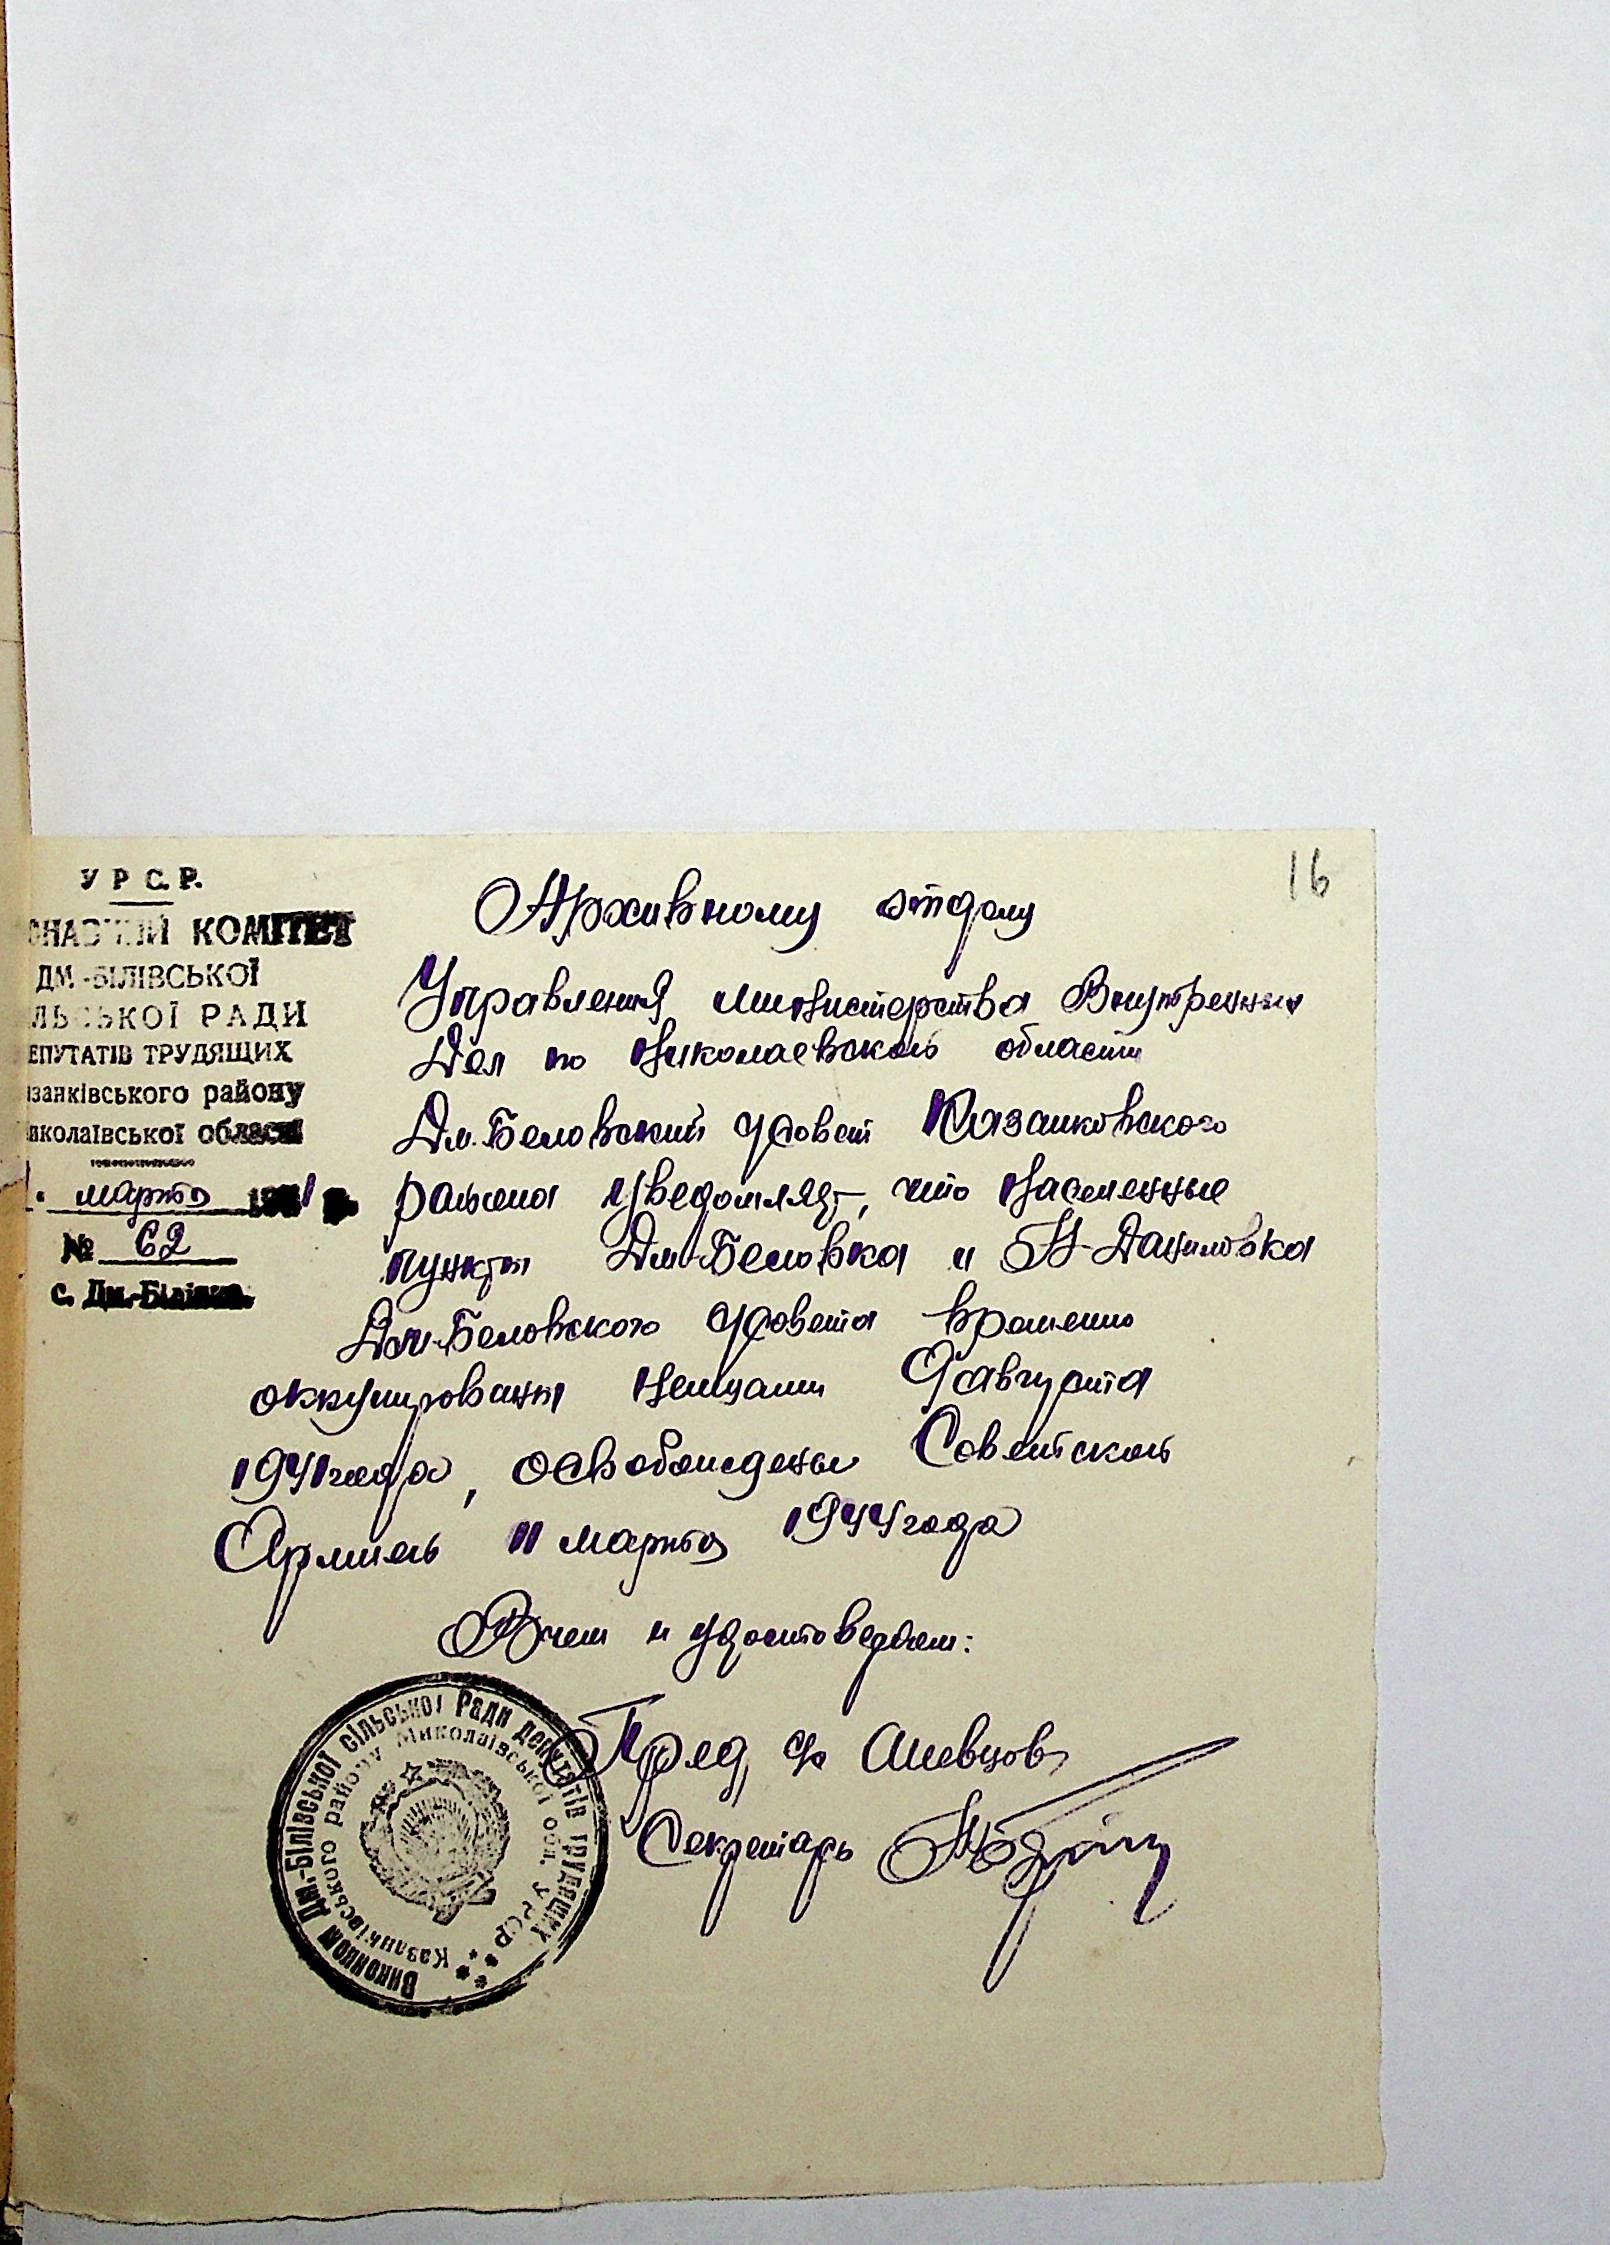 16
У Р С. Р.
ОНАВЧИЙ КОМІТЕТ
ДМ.-БІЛІВСЬКОЇ
ЛЬСЬКОЇ РАДИ
ЕПУТАТІВ ТРУДЯЩИХ
занківського району
иколаївської області
марта
№ 62
с. Дм.-Білівка.
Архивному отделу
Управления министерства Внутренних
Дел по Николаевской области
Дм.-Беловский с/совет Казанковского
района уведомляет, что населенные
пункты Дм-Беловка и Н-Даниловка
Дм-Беловского с/совета временно
оккупированы немцами 9 августа
1941 года, освобождены Советской
Армией 11 марта 1944 года
В чем и удостоверяем:
Пред с/с Ашевцов
Секретарь
Виконком Дм.-Білівської сільської Ради депутатів трудящих
Казанківського району Миколаївської обл. УРСР